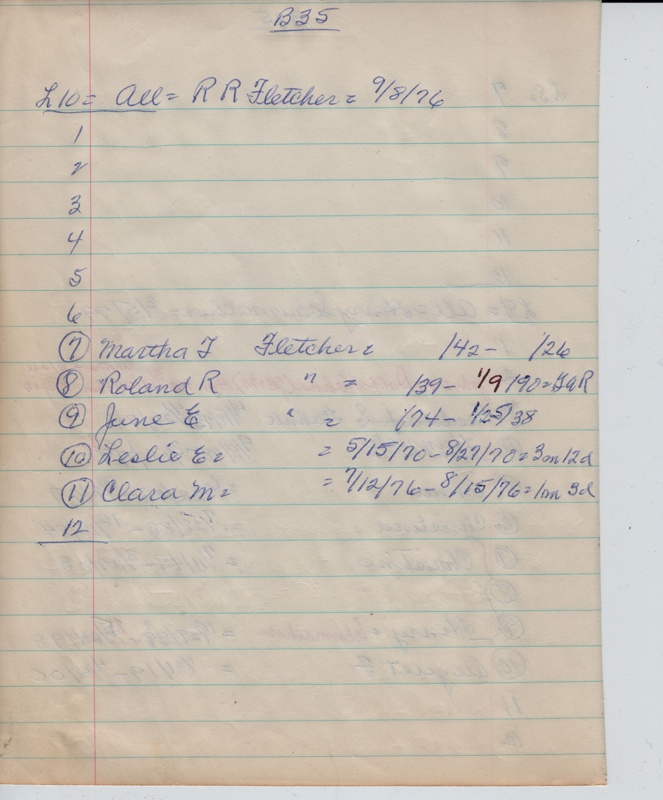 B35
L10 = All = R R Fletcher = 9/8/76
1
2
3
4
5
6
7 Martha F Fletcher = /42 - /26
8 Roland R " = /39 - 1/9/90 = GAR
9 June E " = /74 - 1/25/38
10 Leslie E = = 5/15/70 - 8/27/70 = 3m 12d
11 Clara M = = 7/12/76 - 8/15/76 = 1m 3d
12